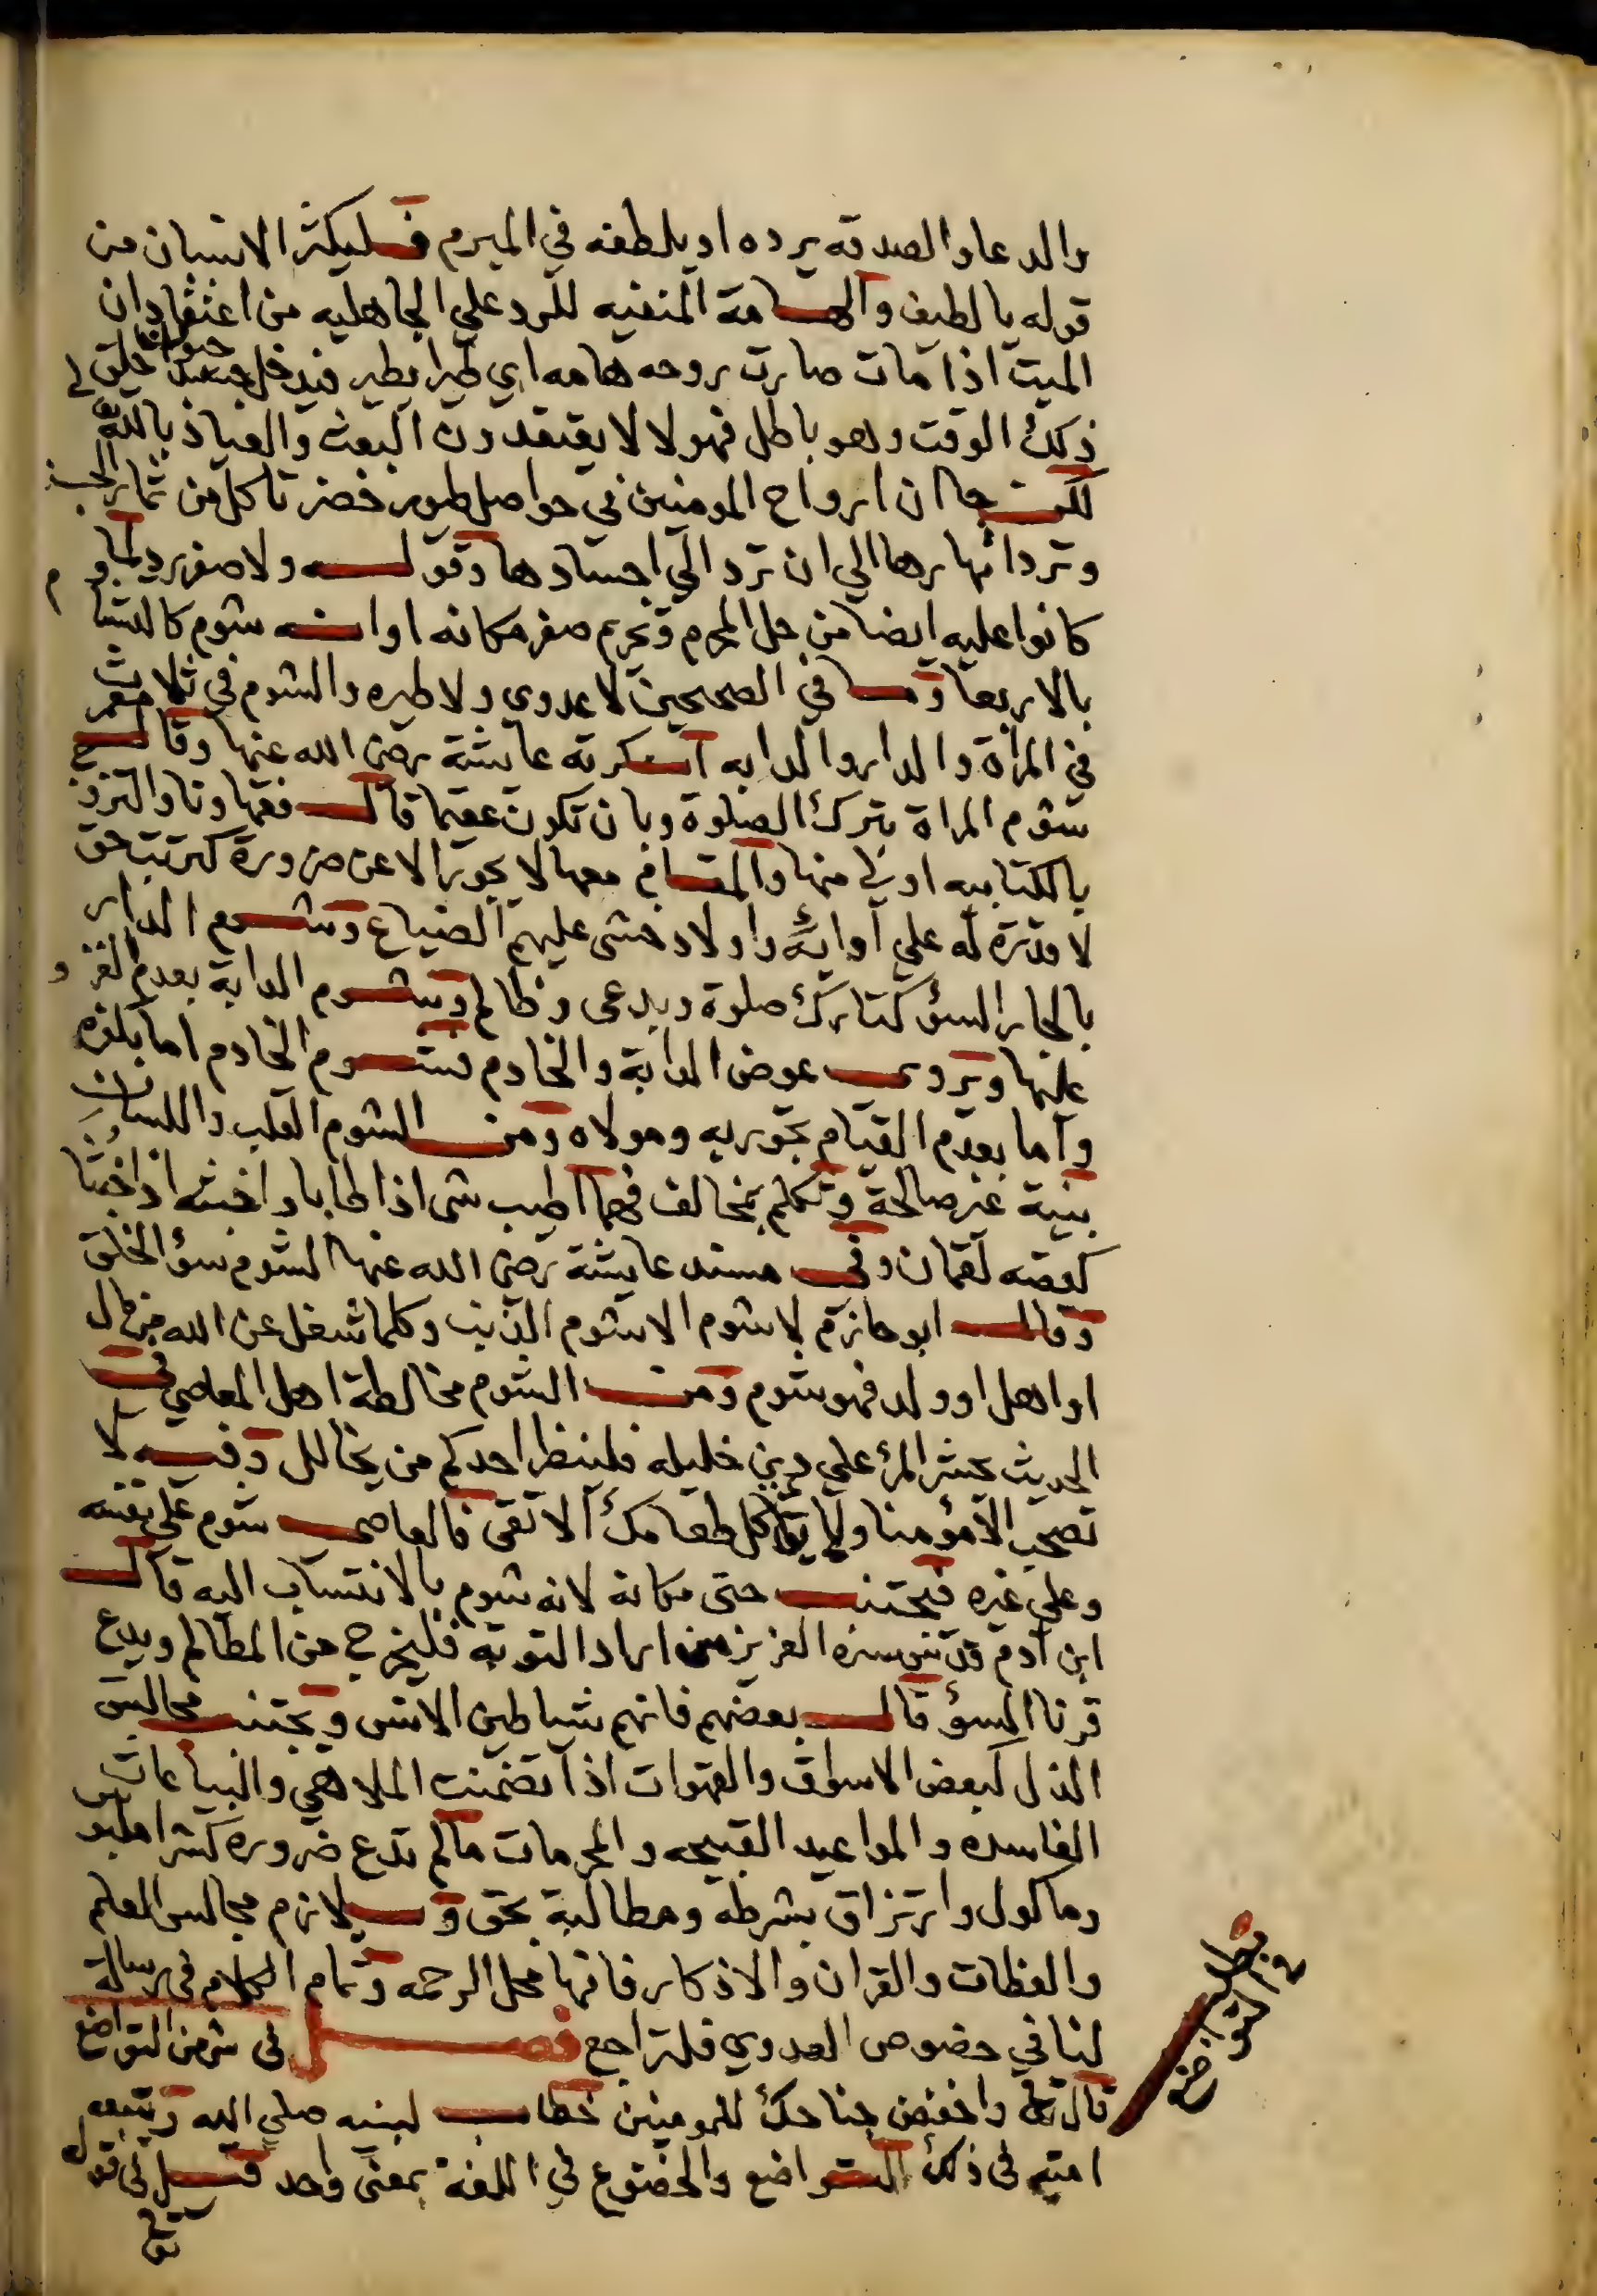 والدعا والصدقه يرده او يلطفه في المبرم فليكثر الانسان من
قوله يا لطيف والهامة المنفيه للرد علي الجاهليه من اعتقاد ان
الميت اذا مات صارت روحه هامه اي طيرا يطير فيدخل حيوان خلق في
ذلك الوقت وهو باطل فهولا لا يعتقدون البعث والعياذ بالله
لكن جا ان ارواح المومنين في حواصل طيور خضر تاكل من ثمار الجنة
وترد انهارها الي ان ترد الي اجسادها وقوله ولا صفر رد لما
كانوا عليه ايضا من حل المحرم وتحريم صفر مكانه او انه شوم كالتشاوم
بالاربعا وما في الصحيحين لا عدوي ولا طيره والشوم في ثلاث
في المراة والدار والدابه انكرته عايشة رضي الله عنها وقال معمر
شوم المراة بترك الصلوة وبان تكون عقيما قال فقهاونا والتزوج
بالكتابيه اولي منها والمقام معها لا يجوز الا عن ضرورة كترتب حق
لا قدرة له علي ادائه واولاد خشى عليهم الضياع وشوم الدار
بالجار السؤ كتارك صلوة وبدعى وظالم وشوم الدابة بعدم الغزو
عليها ويروى عوض الدابة والخادم فشوم الخادم اما بكفره
واما بعدم القيام بحق ربه ومولاه ومن الشوم القلب واللسان
بنية غير صالحة وتكلم بمخالف فهما اطيب شى اذا طابا واخبثه اذا خبثا
كقصه لقمان وفي مسند عايشة رضي الله عنها الشوم سؤ الخلق
وقال ابو حازم لا شوم الا شوم الذنب وكلما شغل عن الله من مال
او اهل او ولد فهو شوم ومن الشوم مخالطة اهل المعاصي في
الحديث يحشر المرؤ علي دين خليله فلينظر احدكم من يخالل وفيه لا
تصحب الا مؤمنا ولا ياكل طعامك الا تقى فالعاصى شوم علي نفسه
وعلي غيره فيجتنب حتى مكانه لانه شوم بالانتساب اليه قال
ابن ادم قدس سره العزيز من اراد التوبه فليخرج من المظالم ويدع
قرنا السؤ قال بعضهم فانهم شياطين الانس ويجتنب مجالس
الذل كبعض الاسواق والقهوات اذا تضمنت الملاهي والبياعات
الفاسده والمواعيد القبيحه والمحرمات مالم تدع ضروره كشرا ملبوس
وماكول وارتزاق بشرطه ومطالبة بحق ويلازم مجالس العلم
والعظات والقران والاذكار فانها محل الرحمه وتمام الكلام في رسالة
لنا في خصوص العدوي فلتراجع فصل في شرف التواضع
قال تعالى واخفض جناحك للمومنين خطاب لنبيه صلي الله وتتبعه
امته في ذلك التواضع والخضوع في اللغة بمعنى واحد قيل في قوله
مطلب
في التواضع